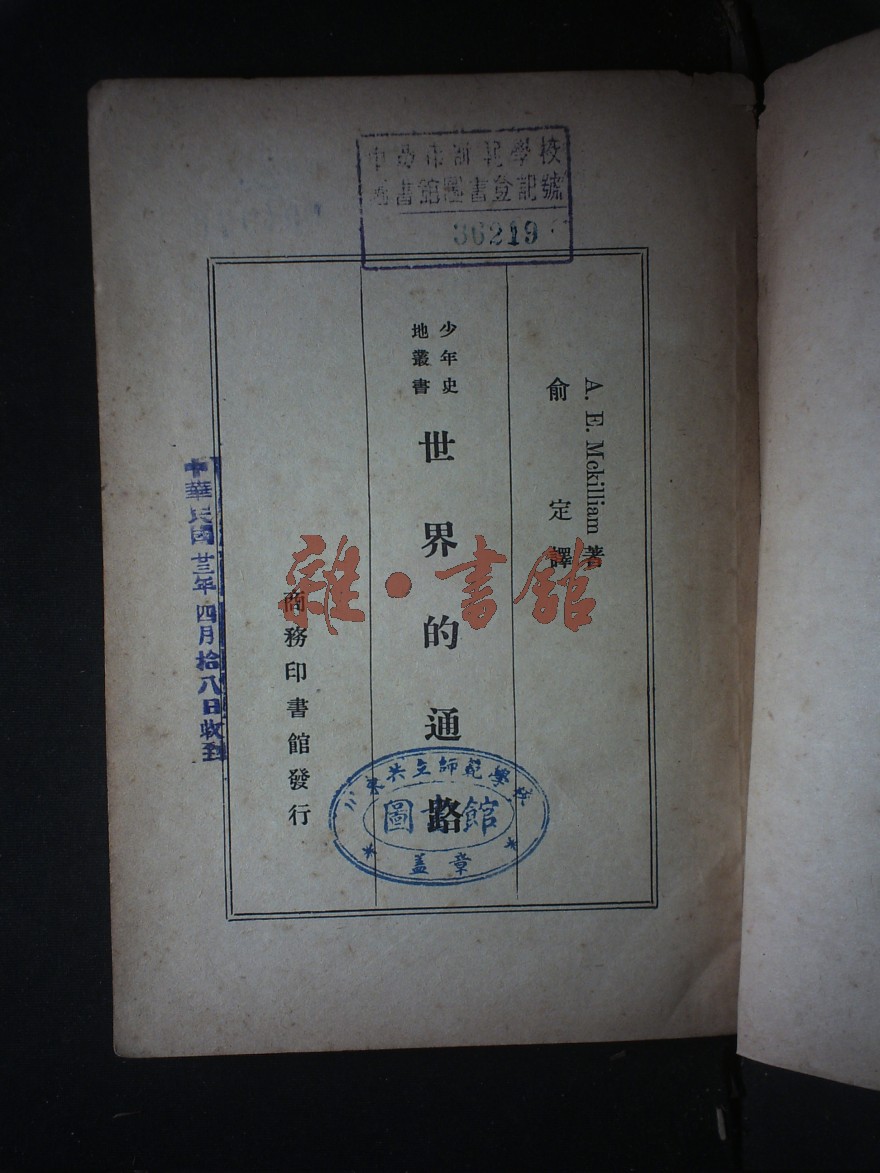 師範學校
書館圖書登記號
36219
A. E. Mckilliam 著
俞定譯
少年史
地叢書
世界的通路
商務印書館發行
川東共立師範學校
圖書館
蓋章
中華民國廿三年四月拾八日收到
雜·書館